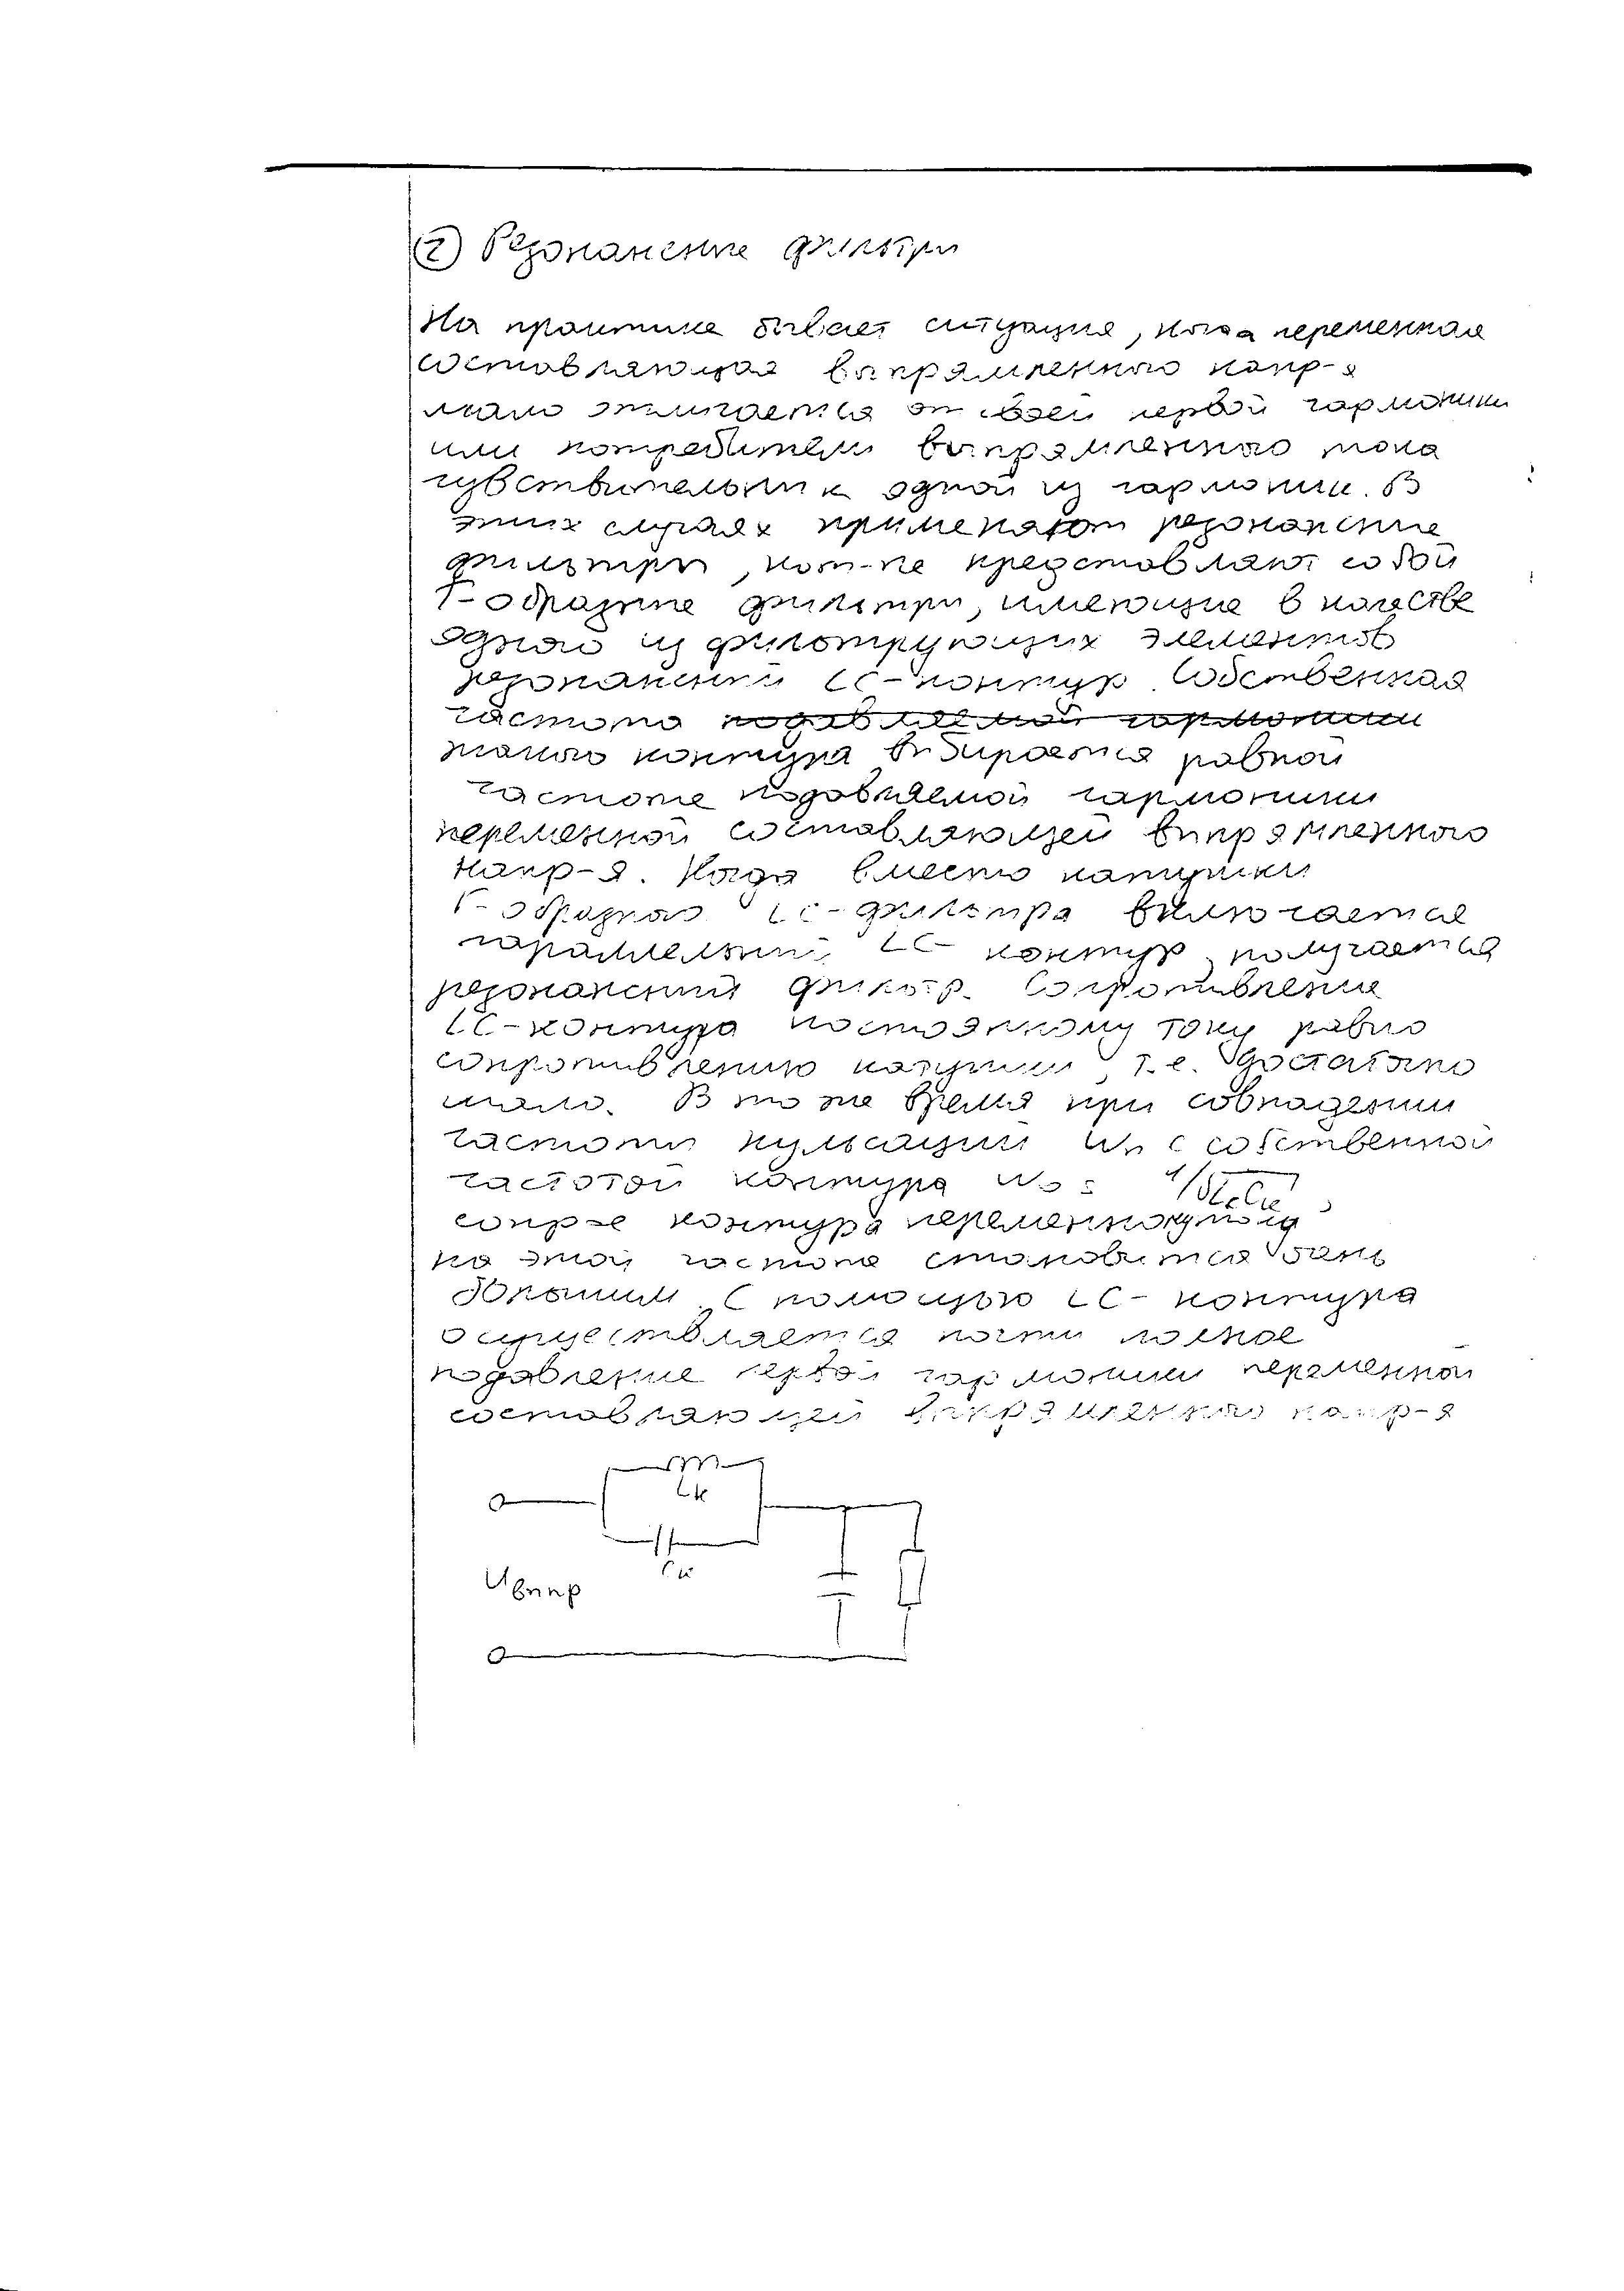 ② Резонансные фильтры
На практике бывает ситуация, когда переменная
составляющая выпрямленного напр-я
мало отличается от своей первой гармоники
или потребители выпрямленного тока
чувствительны к одной из гармоник. В
этих случаях применяют резонансные
фильтры, кот-ые представляют собой
Г-образные фильтры, имеющие в качестве
одного из фильтрующих элементов
резонансный LC-контур. Собственная
частота подавляемой гармоники
такого контура выбирается равной
частоте подавляемой гармоники
переменной составляющей выпрямленного
напр-я. Когда вместо катушки
Г-образного LC-фильтра включается
параллельный LC-контур, получается
резонансный фильтр. Сопротивление
LC-контура постоянному току равно
сопротивлению катушки, т.е. достаточно
мало. В то же время при совпадении
частоты пульсаций ωп с собственной
частотой контура ω0 = 1/√LкCк,
сопр-е контура переменному току
на этой частоте становится очень
большим. С помощью LC-контура
осуществляется почти полное
подавление первой гармоники переменной
составляющей выпрямленного напр-я
Lк
Cк
Uвыпр